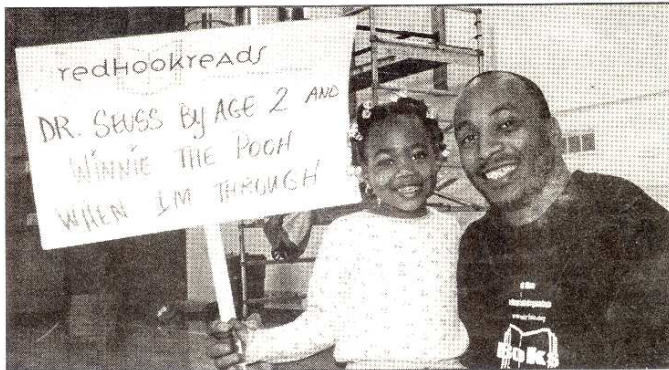 redHookreads
DR. SEUSS By AGE 2 AND
WINNIE THE POOH
WHEN IM THROUGH
Boks